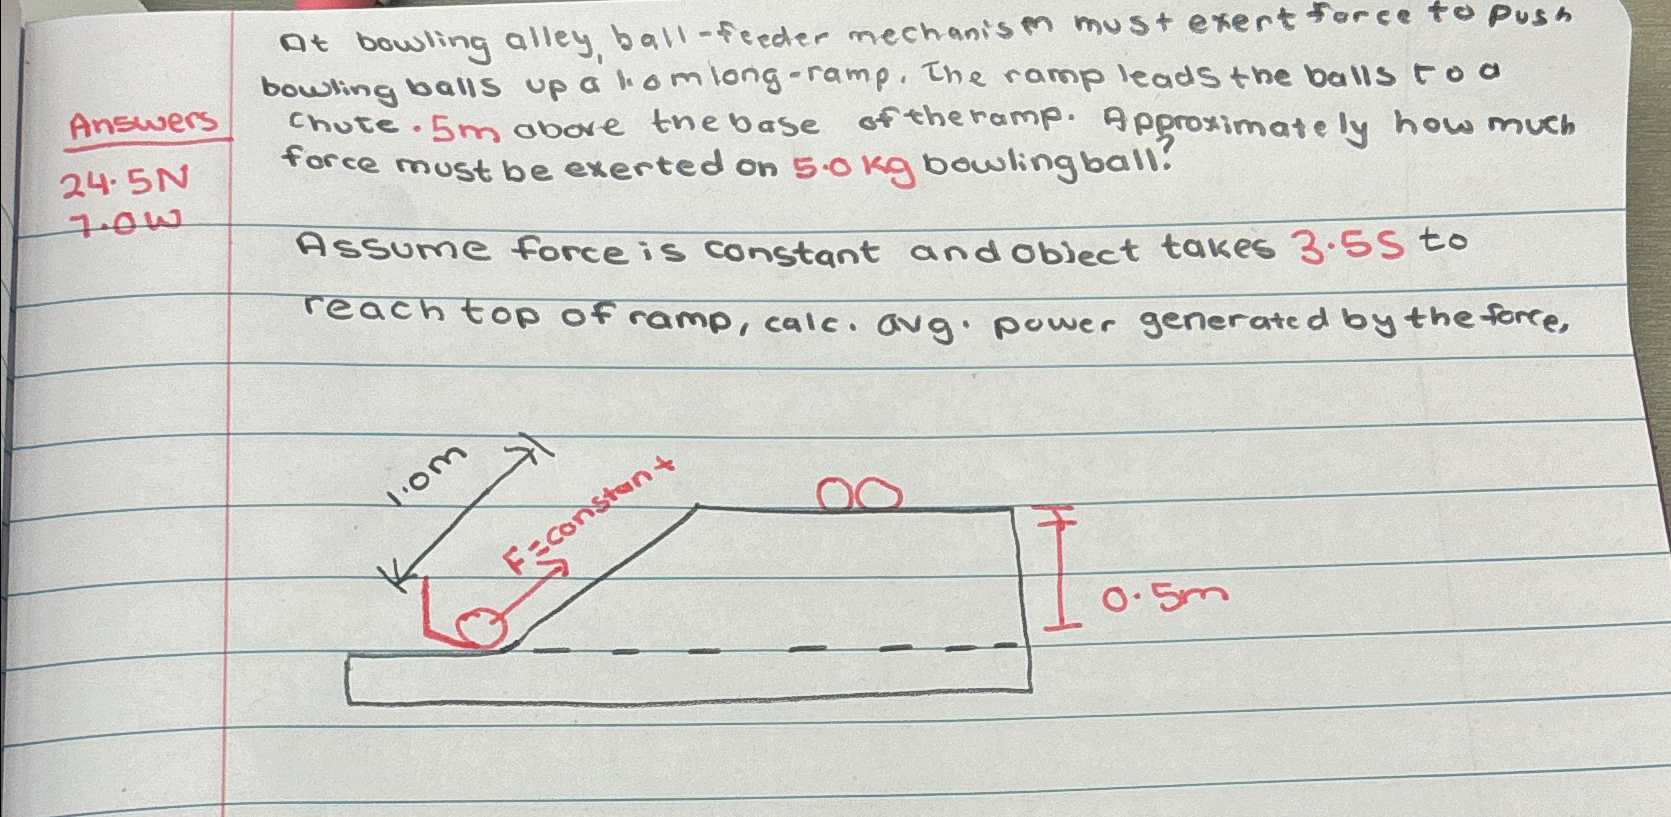 At bowling alley, ball-feeder mechanism must exert force to push
bowling balls up a 1.0m long-ramp. The ramp leads the balls to a
chute .5m above the base of the ramp. Approximately how much
force must be exerted on 5.0 kg bowling ball?
Answers
24.5N
7.0W
Assume force is constant and object takes 3.5S to
reach top of ramp, calc. avg. power generated by the force,
1.0m
F=constant
0.5m